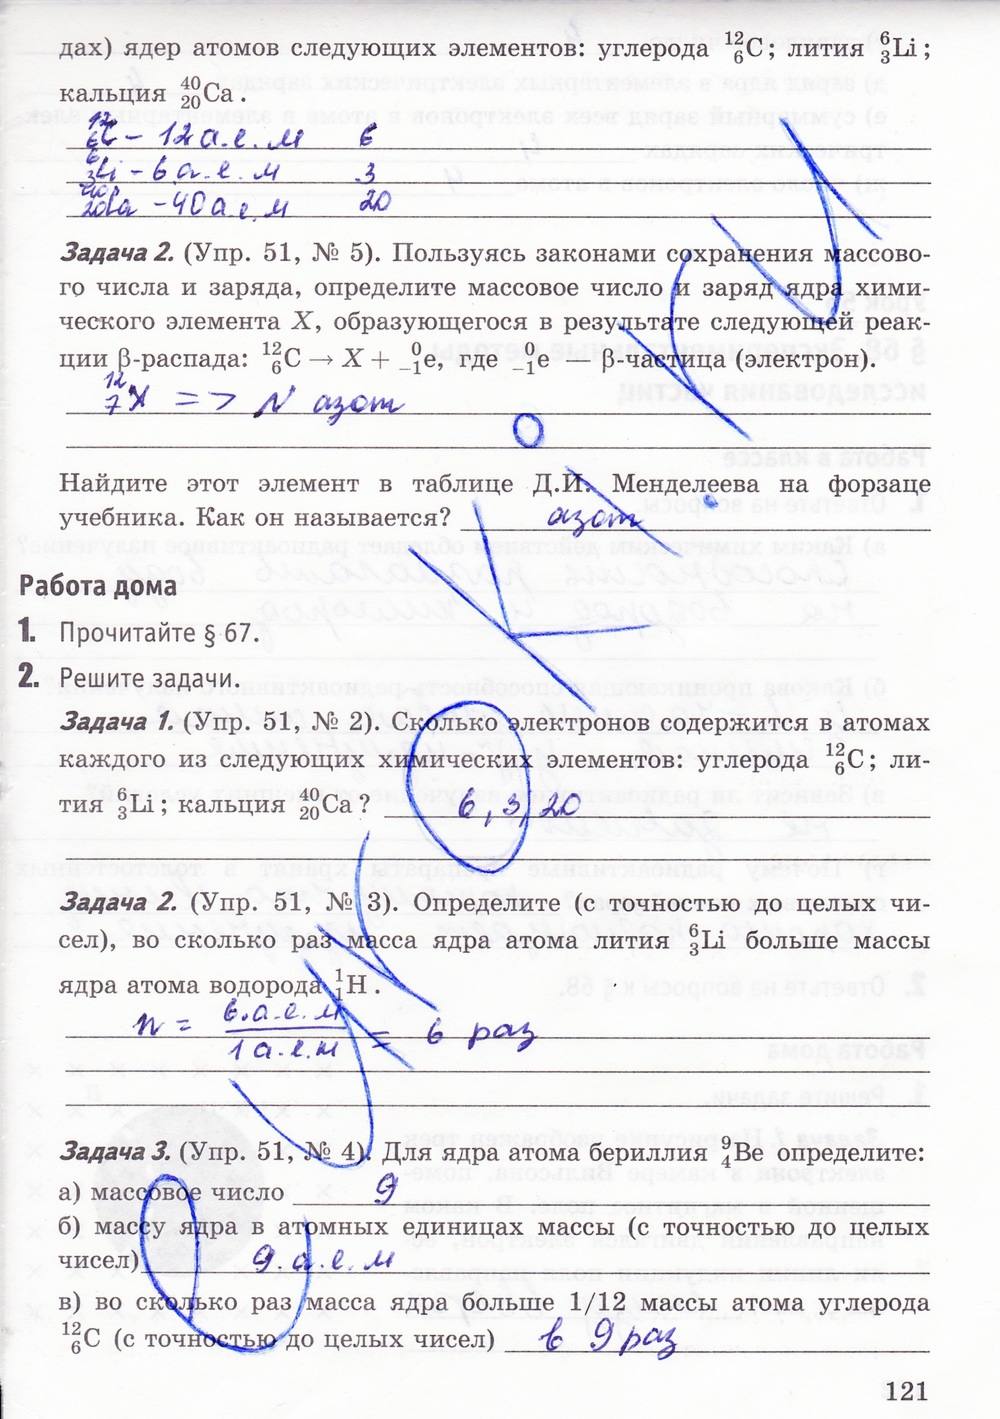 дах) ядер атомов следующих элементов: углерода ¹²₆C; лития ⁶₃Li;
кальция ⁴⁰₂₀Ca.
¹²₆C – 12 а.е.м 6
⁶₃Li – 6 а.е.м 3
⁴⁰₂₀Ca – 40 а.е.м 20
Задача 2. (Упр. 51, № 5). Пользуясь законами сохранения массово-
го числа и заряда, определите массовое число и заряд ядра хими-
ческого элемента X, образующегося в результате следующей реак-
ции β-распада: ¹²₆C → X + ⁰₋₁e, где ⁰₋₁e — β-частица (электрон).
¹²₇X => N азот
Найдите этот элемент в таблице Д.И. Менделеева на форзаце
учебника. Как он называется? азот
Работа дома
1. Прочитайте § 67.
2. Решите задачи.
Задача 1. (Упр. 51, № 2). Сколько электронов содержится в атомах
каждого из следующих химических элементов: углерода ¹²₆C; ли-
тия ⁶₃Li; кальция ⁴⁰₂₀Ca? 6, 3, 20
Задача 2. (Упр. 51, № 3). Определите (с точностью до целых чи-
сел), во сколько раз масса ядра атома лития ⁶₃Li больше массы
ядра атома водорода ¹₁H.
n = 6.а.е.м / 1 а.е.м = 6 раз
Задача 3. (Упр. 51, № 4). Для ядра атома бериллия ⁹₄Be определите:
а) массовое число 9
б) массу ядра в атомных единицах массы (с точностью до целых
чисел) 9.а.е.м
в) во сколько раз масса ядра больше 1/12 массы атома углерода
¹²₆C (с точностью до целых чисел) в 9 раз
121